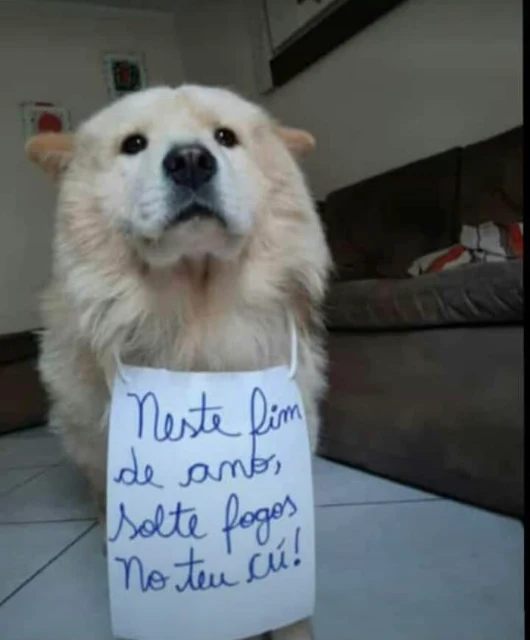 Neste fim
de ano,
solte fogos
No teu cú!